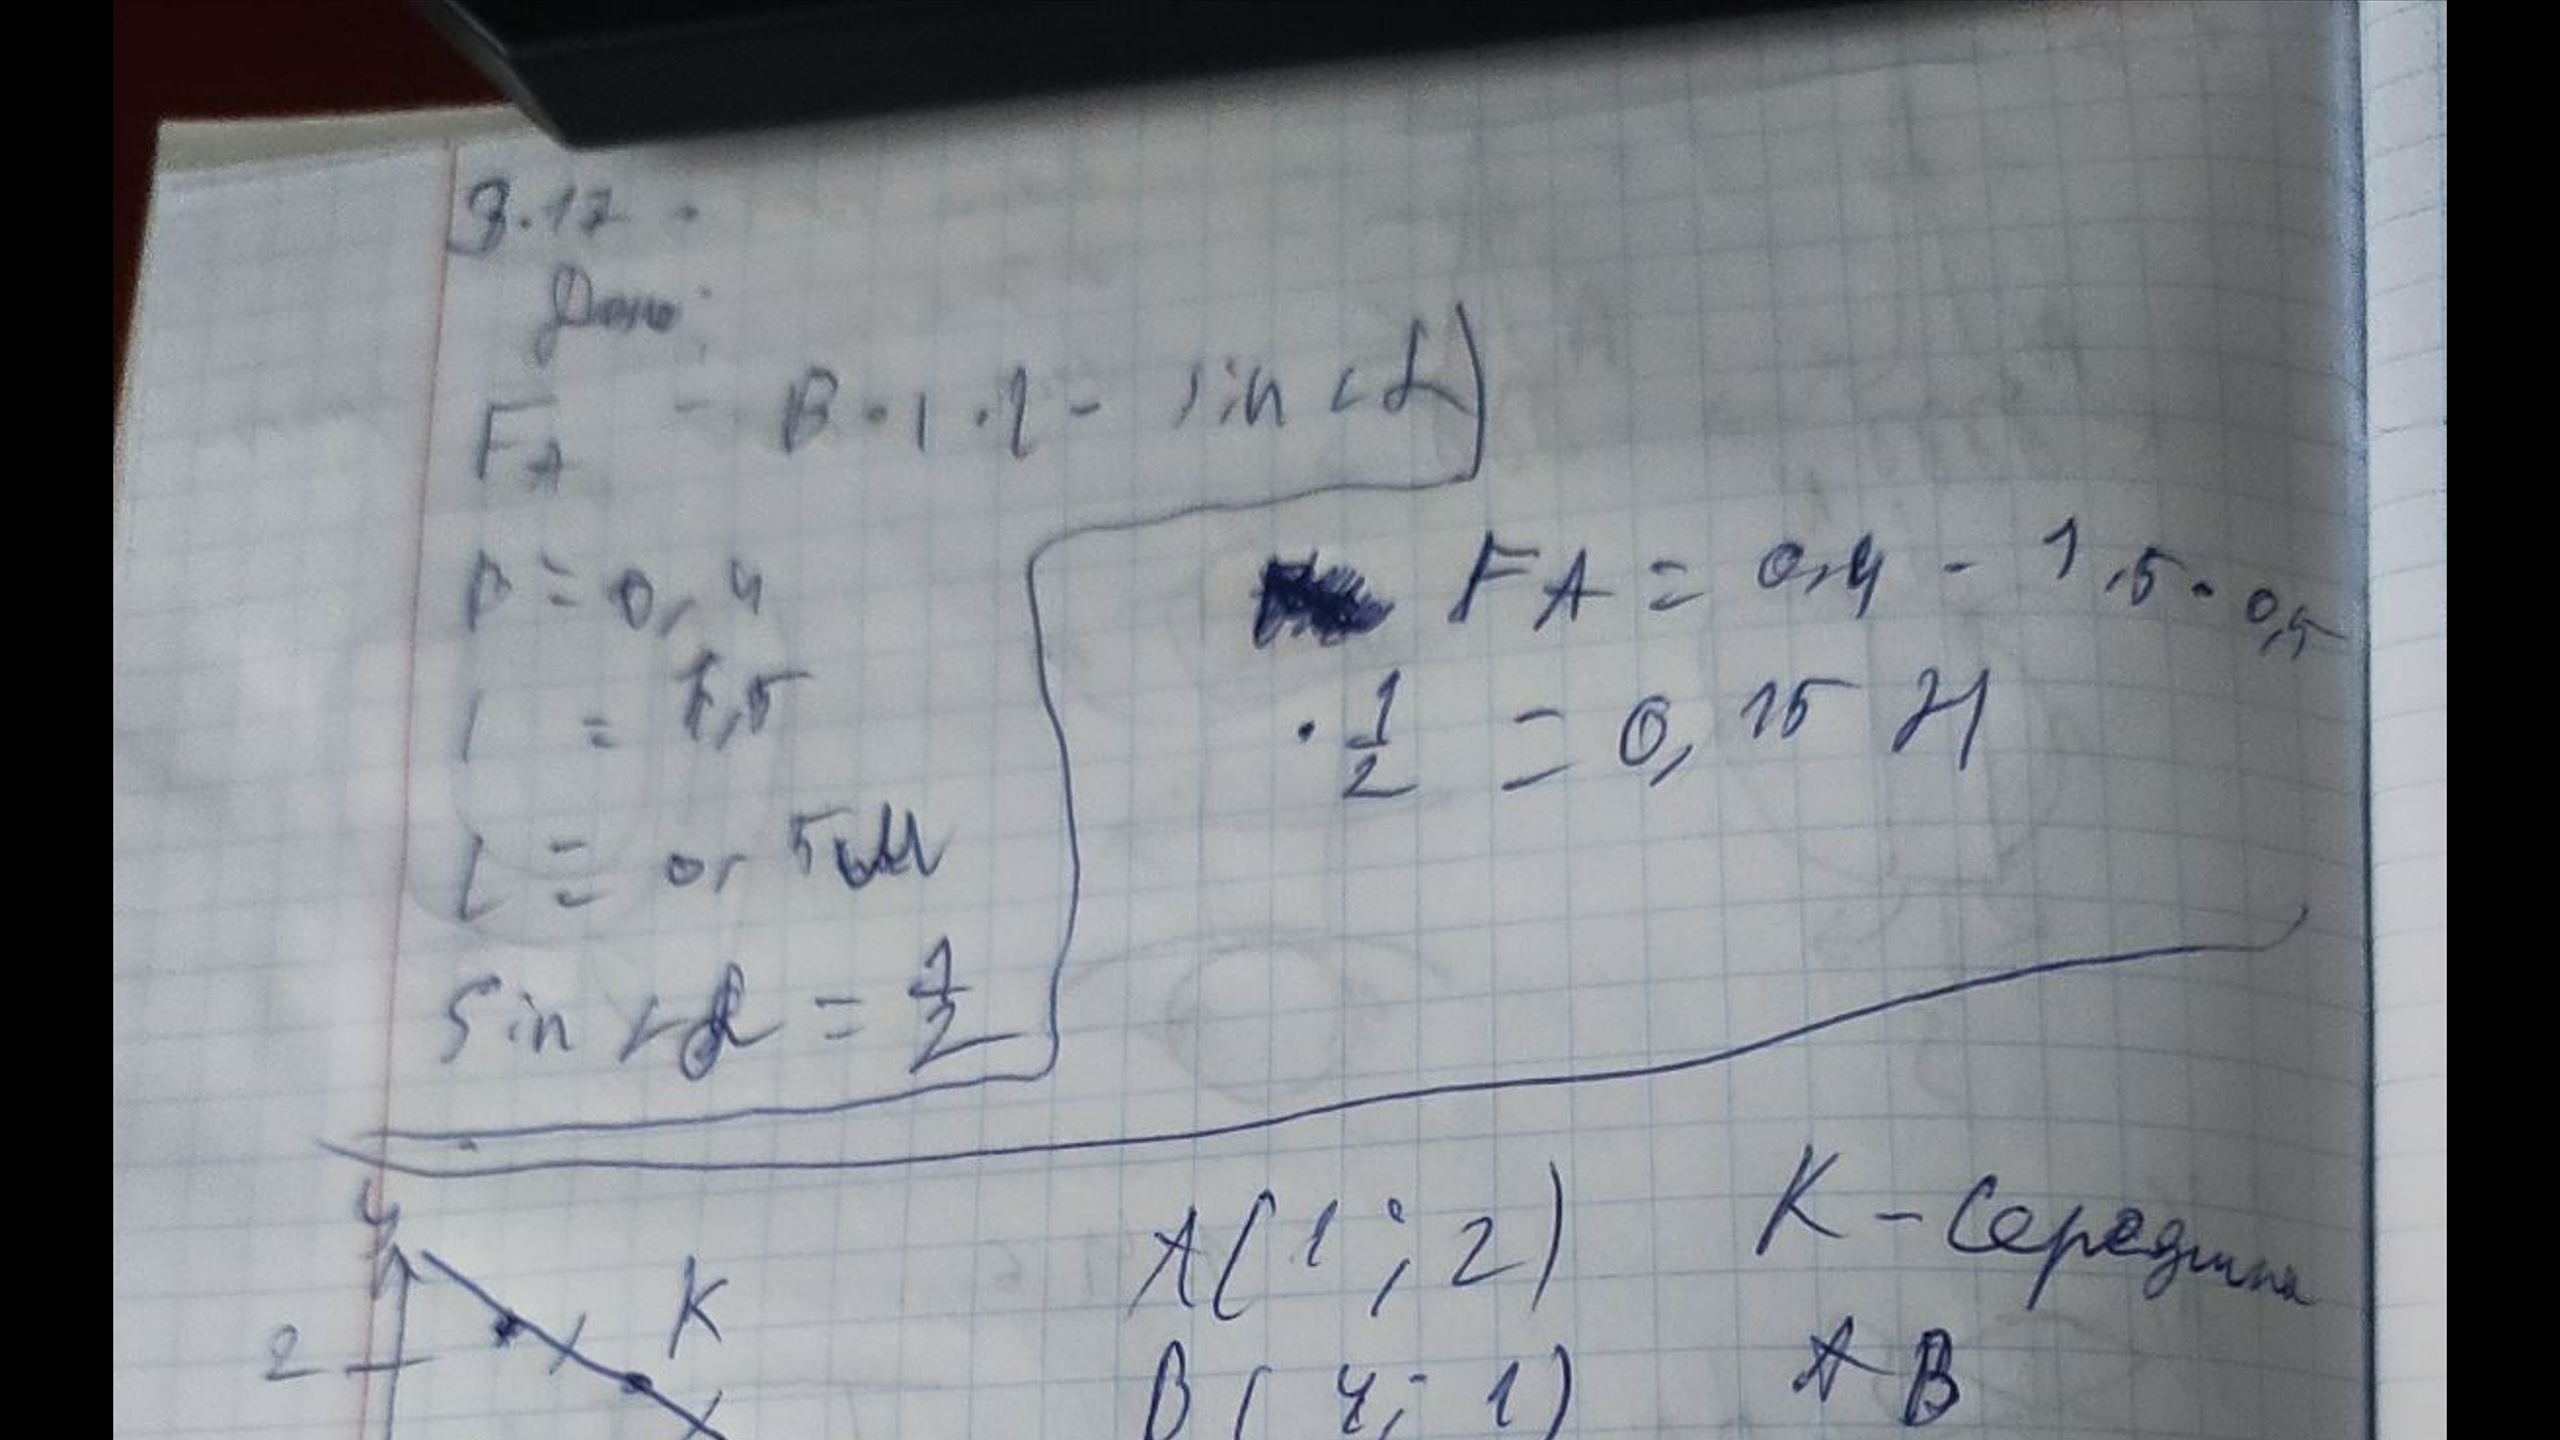 3.17.
Дано:
FA - B·I·l - sin ∠α
B = 0,4
I = 1,5
L = 0,5 м
Sin ∠α = 1/2
FA = 0,4 · 1,5 · 0,5
· 1/2 = 0,15 Н
y
2
K
A(1; 2)
B(4; 1)
K - Середина
AB